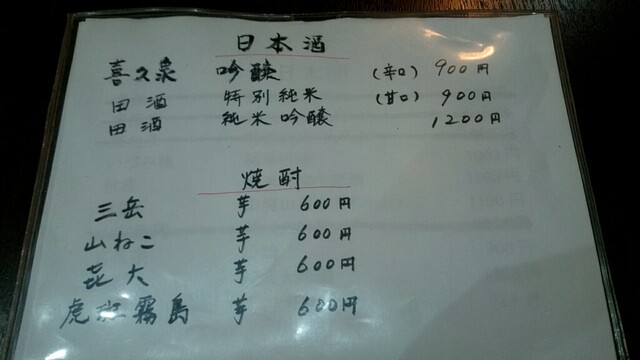 日本酒
喜久泉 吟醸 (辛口) 900円
田酒 特別純米 (甘口) 900円
田酒 純米吟醸 1200円
焼酎
三岳 芋 600円
山ねこ 芋 600円
㐂六 芋 600円
虎斑霧島 芋 600円